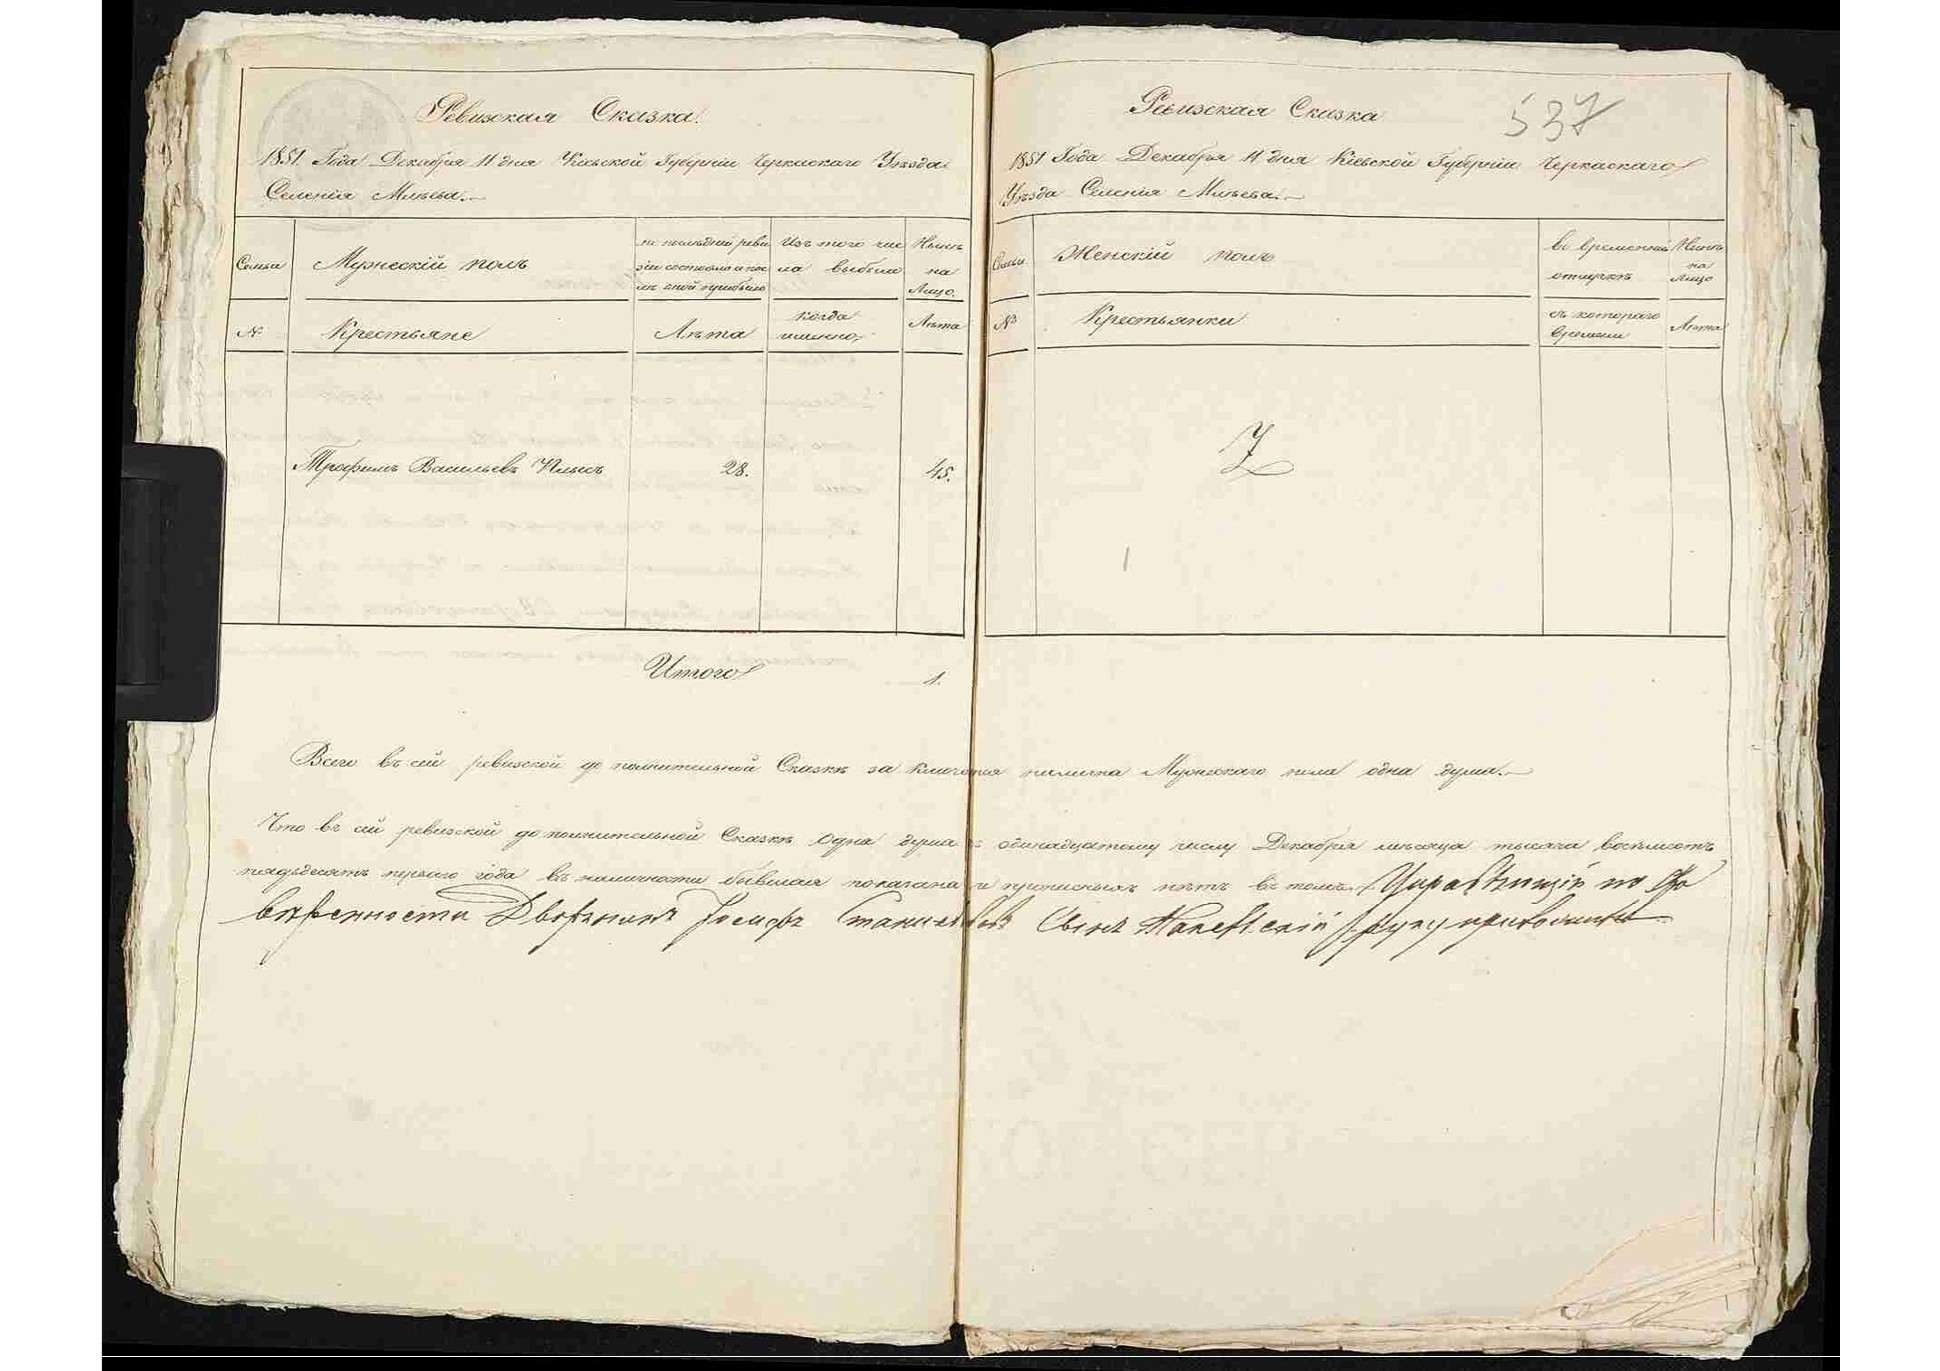 Ревизская Сказка.
1851 Года Декабря 11 дня Кіевской Губерніи Черкаскаго Уѣзда
Селенія Млѣева.
Семьи
Мужескій полъ
по послѣдней реви
зіи состояло и пос
лѣ оной прибыло
Изъ того чис
ла выбыло
Нынѣ
на
Лицо.
№
Крестьяне
Лѣта
когда
именно
Лѣта
Трофимъ Васильевъ
28.
45.
Итого
1.
Ревизская Сказка
537
1851 Года Декабря 11 дня Кіевской Губерніи Черкаскаго
Уѣзда Селенія Млѣева.
Семьи
Женскій полъ
во временной
отлучкѣ
Нынѣ
на
Лицо
№
Крестьянки
съ котораго
времени
Лѣта
Всего въ сей ревизской до полнительной Сказкѣ за ключается налична Мужескаго пола одна душа.
Что въ сей ревизской до полнительной Сказкѣ одна душа к одинадцатому числу Декабря мѣсяца тысяча восемьсотъ
пядьдесятъ перваго года въ наличности бывшая показана и прописныхъ нѣтъ въ томъ. Управляющій по До
вѣренности Дворянинъ Іосифъ Станиславовъ Сынъ руку приложилъ